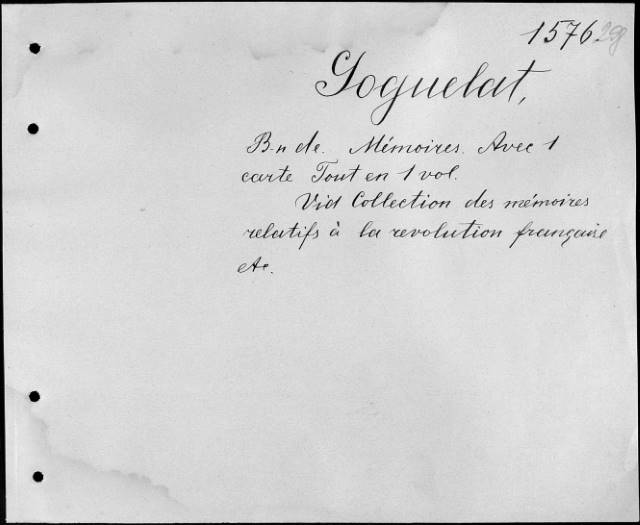 1576 29
Goguelat,
B.n de. Mémoires. Avec 1
carte Tout en 1 vol.
Vid Collection des mémoires
relatifs à la revolution française
etc.